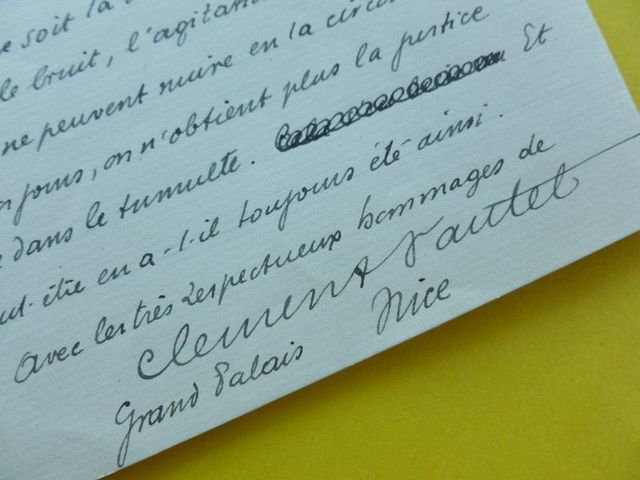 soit la
le bruit, l'agitation
ne peuvent nuire en la
jours, on n'obtient plus la justice
dans le tumulte. Et
ut-être en a-t-il toujours été ainsi.
Avec les très respectueux hommages de
Clement Vautel
Grand Palais Nice